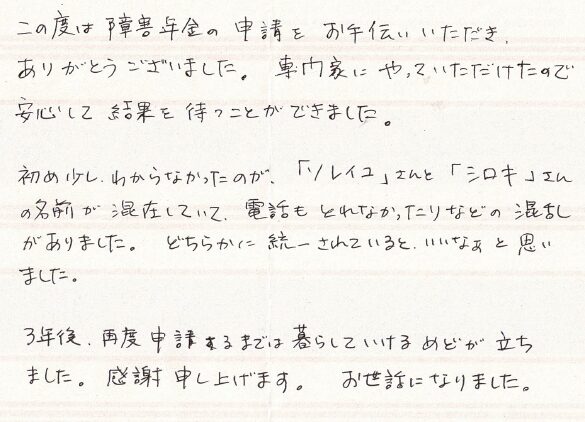 この度は障害年金の申請をお手伝いいただき、
ありがとうございました。 専門家にやっていただけたので
安心して結果を待つことができました。
初め少しわからなかったのが、「ソレイユ」さんと「シロキ」さん
の名前が混在していて、電話もとれなかったりなどの混乱
がありました。 どちらかに統一されていると、いいなぁと思い
ました。
3年後、再度申請するまでは暮らしていけるめどが立ち
ました。感謝申し上げます。 お世話になりました。